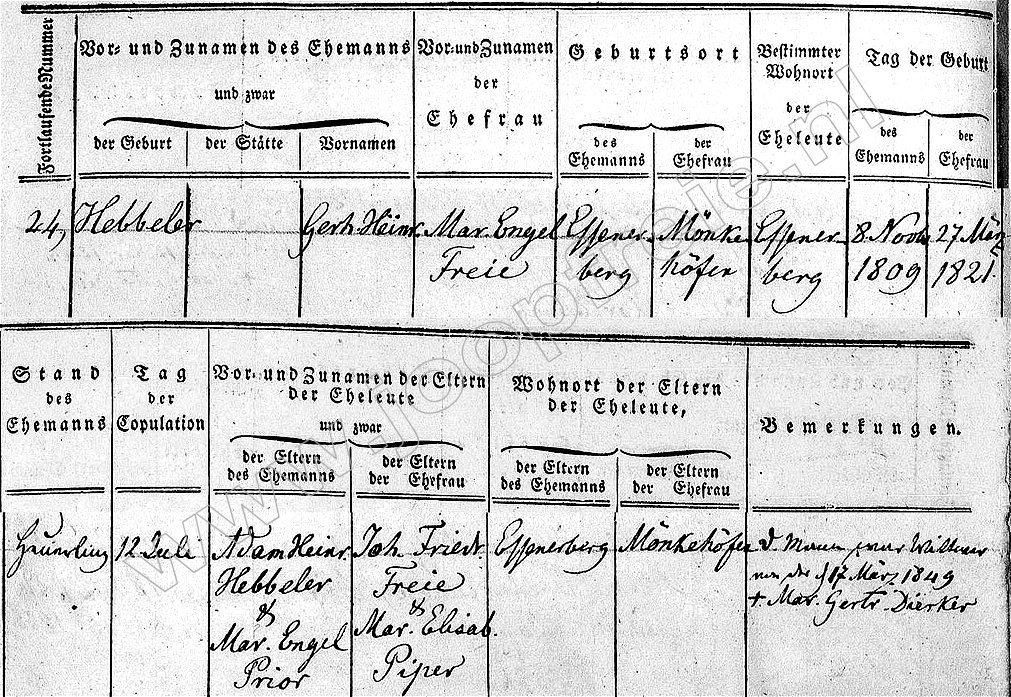 Fortlaufende Nummer
Vor- und Zunamen des Ehemanns
und zwar
der Geburt
der Stätte
Vornamen
Vor- und Zunamen
der
Ehefrau
Geburtsort
des
Ehemanns
der
Ehefrau
Bestimmter
Wohnort
der
Eheleute
Tag der Geburt
des
Ehemanns
der
Ehefrau
24,
Hebbeler
Gerh. Heinr.
Mar. Engel
Freie
Essener-
berg
Mönke
höfen
Essener-
berg
8 Novb
1809
27 März
1821.
Stand
des
Ehemanns
Tag
der
Copulation
Vor- und Zunamen der Eltern
der Eheleute
und zwar
der Eltern
des Ehemanns
der Eltern
der Ehefrau
Wohnort der Eltern
der Eheleute,
der Eltern
des Ehemanns
der Eltern
der Ehefrau
Bemerkungen.
Heuerling
12 Juli
Adam Heinr.
Hebbeler
&
Mar. Engel
Prior
Joh. Friedr.
Freie
&
Mar. Elisab.
Piper
Essenerberg
Mönkehöfen
d. Mann war Wittwer
von der d 17 März 1849
+ Mar. Gertr. Dierker
www.joopnoie.nl